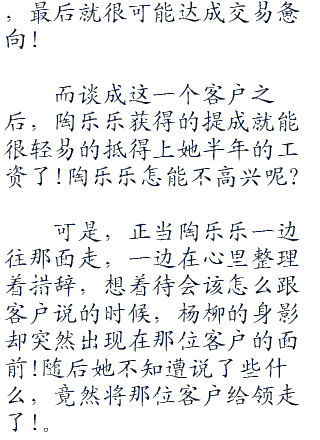 ，最后就很可能达成交易意
向！
而谈成这一个客户之
后，陶乐乐获得的提成就能
很轻易的抵得上她半年的工
资了！陶乐乐怎能不高兴呢？
可是，正当陶乐乐一边
往那面走，一边在心里整理
着措辞，想着待会该怎么跟
客户说的时候，杨柳的身影
却突然出现在那位客户的面
前！随后她不知遭说了些什
么，竟然将那位客户给领走
了！。